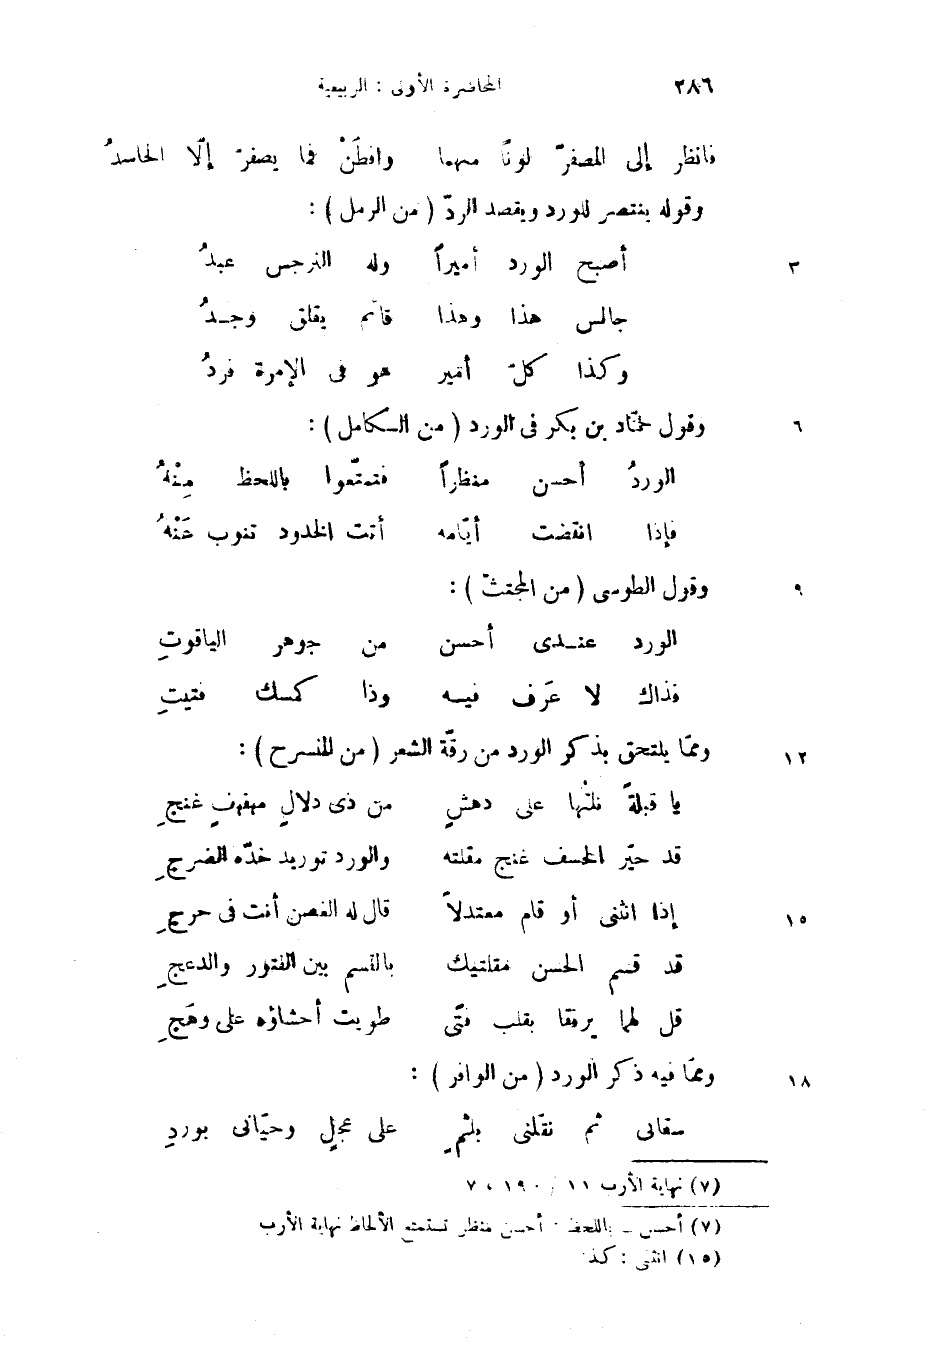 ٢٨٦ المحاضرة الأولى : الربيعية
فانظر إلى المصفرّ لونًا منهما وافطَنْ فما يصفرّ إلّا الحاسدُ
وقوله ينتصر للورد ويقصد الردّ ( من الرمل ) :
٣ أصبح الورد أميراً وله النرجس عبدُ
جالس هذا وهذا قائم يقلق وجـدُ
وكذا كلّ أمير هو فى الإمرة فردُ
٦ وقول حمّاد بن بكر فى الورد ( من الكامل ) :
الوردُ أحسن منظراً فتمتّعوا باللحظ مِنْهُ
فإذا انقضت أيّامه أتت الخدود تنوب عَنْهُ
٩ وقول الطوسى ( من المجتثّ ) :
الورد عنـدى أحسن من جوهر الياقوتِ
فذاك لا عَرف فيـه وذا كمسك فتيتِ
١٢ وممّا يلتحق بذكر الورد من رقّة الشعر ( من المنسرح ) :
يا قبلةً نلتُها على دهشٍ من ذى دلالٍ مهفهفٍ غنجِ
قد حيّر الخسف غنج مقلته والورد توريد خدّه الضرجِ
١٥ إذا انثنى أو قام معتدلاً قال له الغصن أنت فى حرجِ
قد قسم الحسن مقلتيك بالقسم بين الفتور والدعجِ
قل لهما يرفقا بقلب فتًى طويت أحشاؤه على وهَجِ
١٨ وممّا فيه ذكر الورد ( من الوافر ) :
سقانى ثم نقّلنى بلثمٍ على عجلٍ وحيّانى بوردِ
(٧) نهاية الأرب ١١ / ١٩٠ ، ٧
(٧) أحسن ـ باللحظ : أحسن منظر تستمتع الألحاظ نهاية الأرب
(١٥) انثنى : كذ